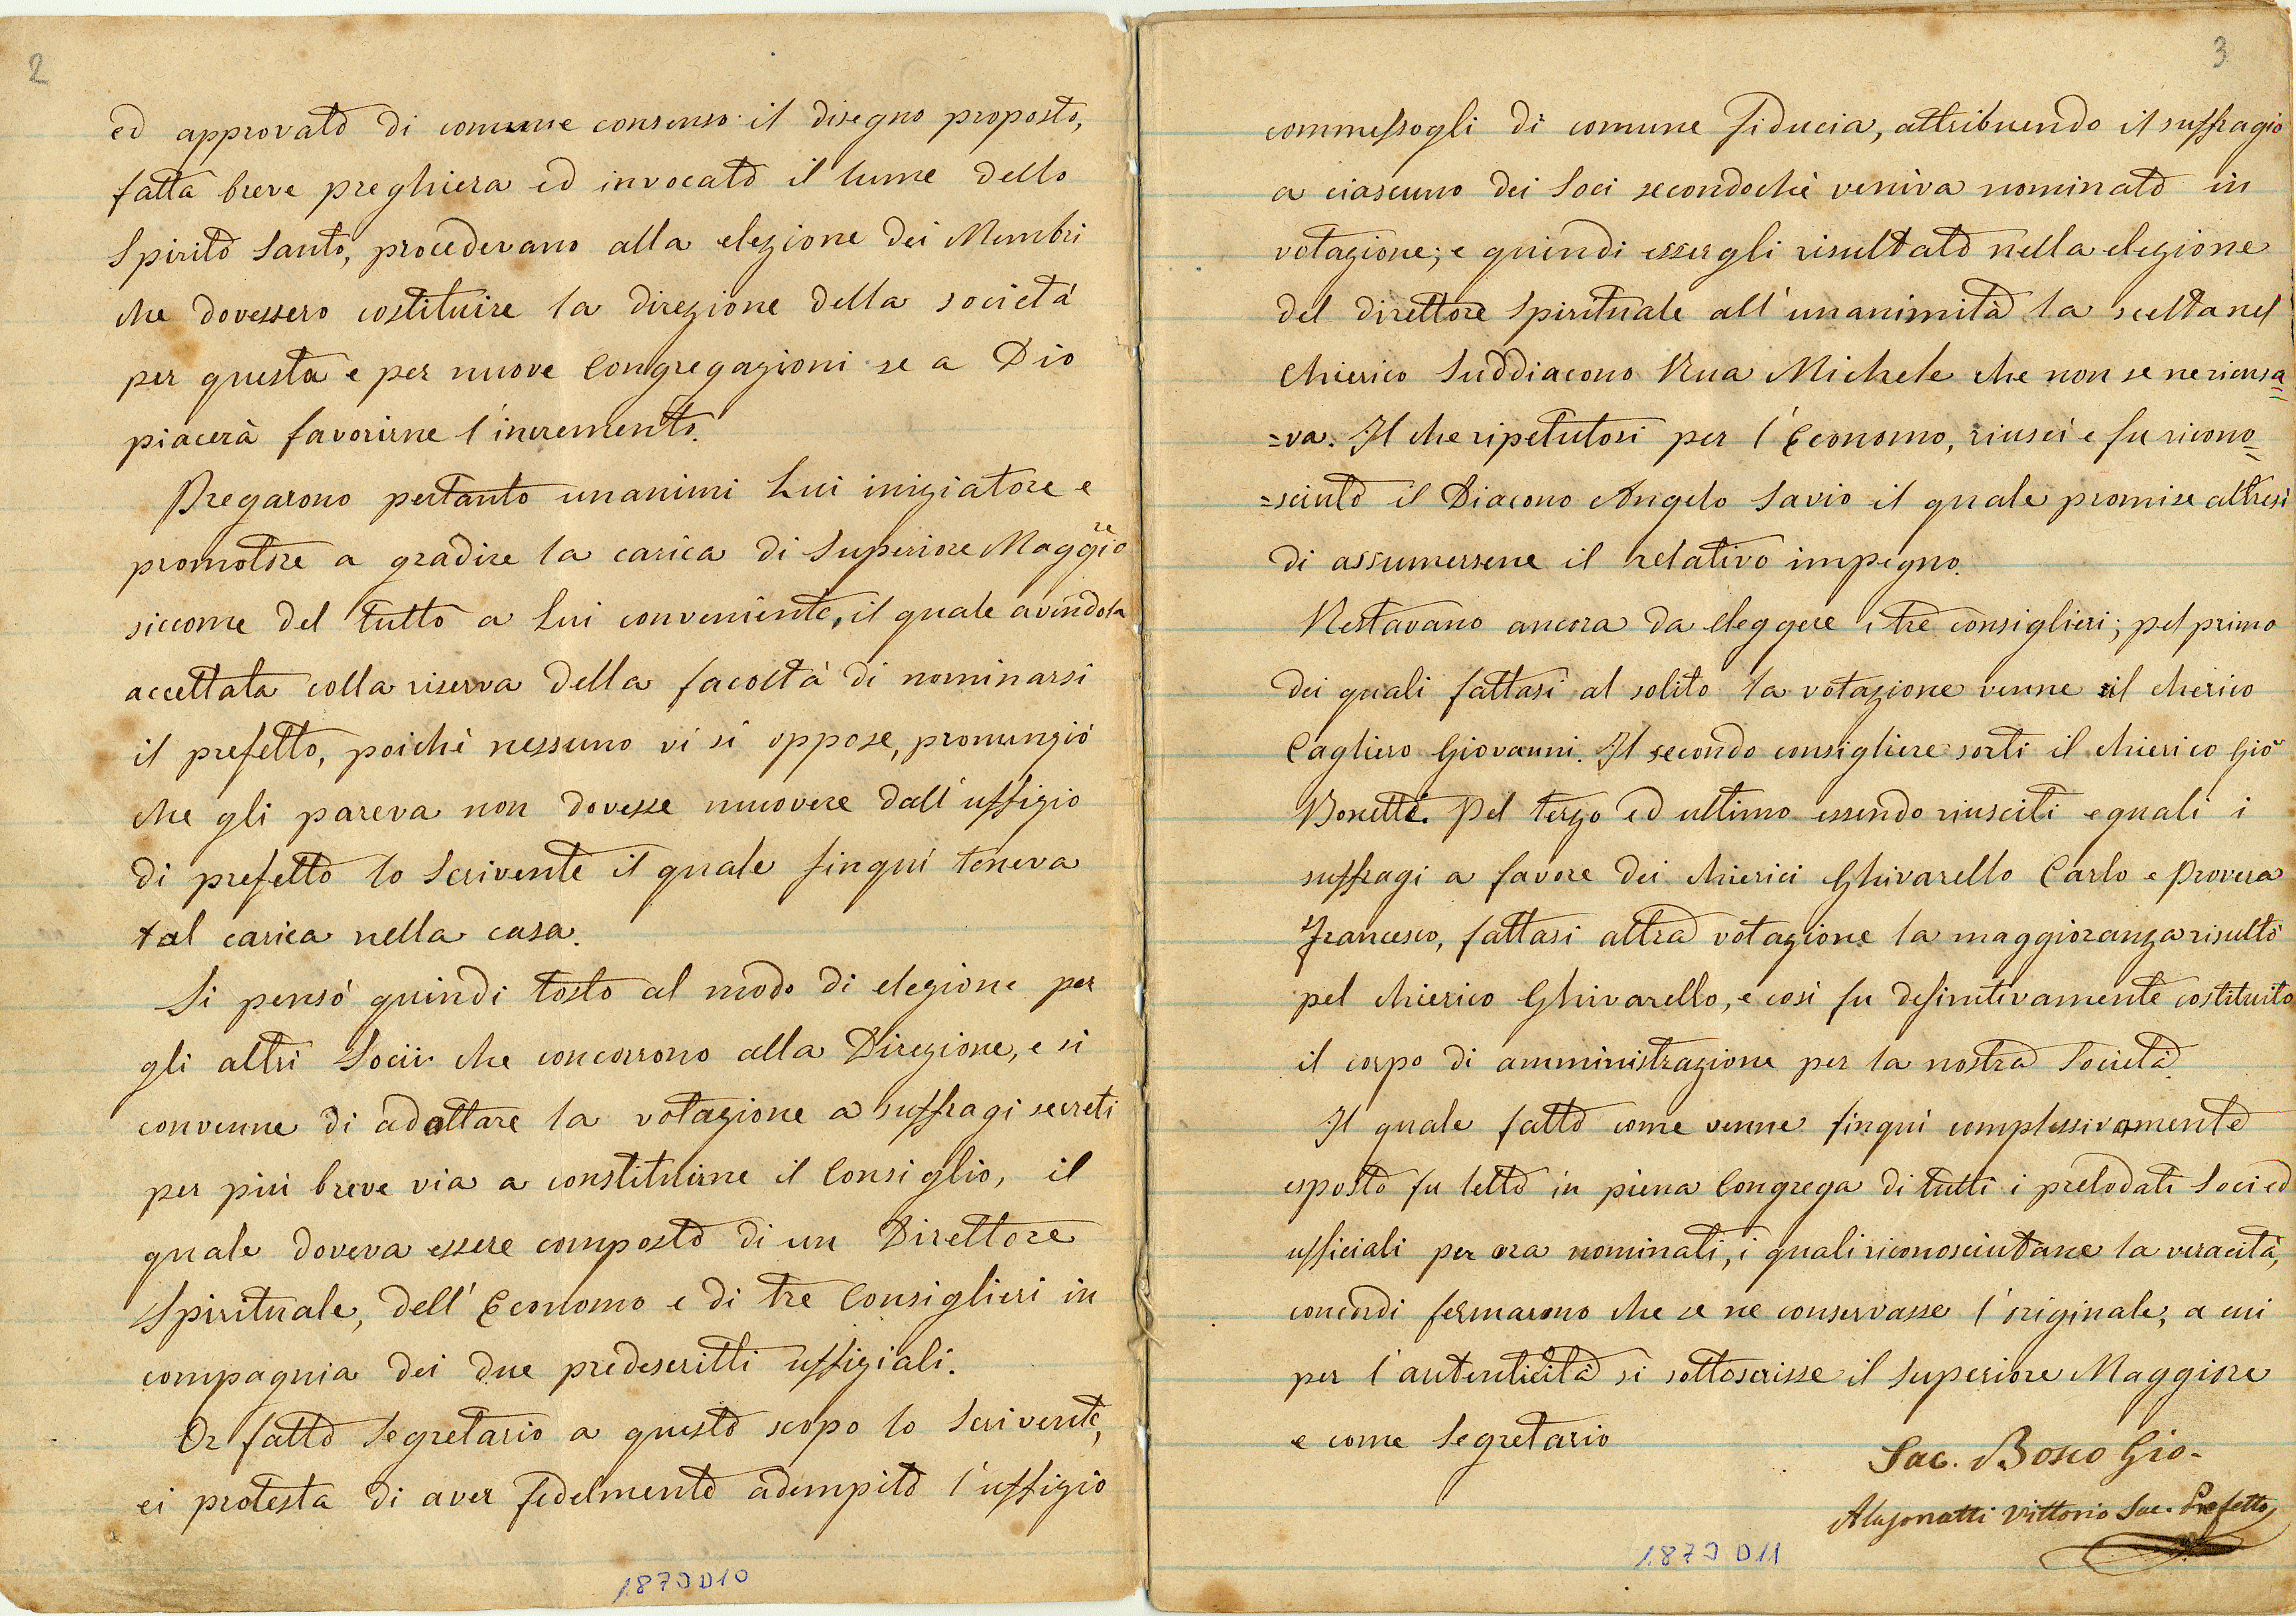 2
ed approvato di comune consenso il disegno proposto,
fatta breve preghiera ed invocato il lume dello
Spirito Santo, procedevano alla elezione dei Membri
che dovessero costituire la direzione della società
per questa e per nuove Congregazioni se a Dio
piacerà favorirne l'incremento.
Pregarono pertanto unanimi Lui iniziatore e
promotore a gradire la carica di Superiore Maggiore
siccome del tutto a Lui conveniente, il quale avendola
accettata colla riserva della facoltà di nominarsi
il prefetto, poichè nessuno vi si oppose, pronunziò
che gli pareva non dovesse muovere dall'uffizio
di prefetto lo Scrivente il quale finqui teneva
tal carica nella casa.
Si pensò quindi tosto al modo di elezione per
gli altri Socii che concorrono alla Direzione, e si
convenne di adottare la votazione a suffragi secreti
per più breve via a constituirne il Consiglio, il
quale doveva essere composto di un Direttore
Spirituale, dell'Economo e di tre Consiglieri in
compagnia dei due predescritti uffiziali.
Or fatto Segretario a questo scopo lo Scrivente,
ei protesta di aver fedelmente adempito l'uffizio
1870D10
3
commessogli di comune fiducia, attribuendo il suffragio
a ciascuno dei Soci secondochè veniva nominato in
votazione; e quindi essergli risultato nella elezione
del direttore Spirituale all'unanimità la scelta nel
Chierico Suddiacono Rua Michele che non se ne ricusa=
=va. Il che ripetutosi per l'Economo, riuscì e fu ricono=
=sciuto il Diacono Angelo Savio il quale promise altresì
di assumersene il relativo impegno.
Restavano ancora da eleggere i tre consiglieri; pel primo
dei quali fattasi al solito la votazione venne il chierico
Cagliero Giovanni. Il secondo consigliere sortì il chierico Gio
Bonetti. Pel terzo ed ultimo essendo riusciti eguali i
suffragi a favore dei chierici Ghivarello Carlo e Provera
Francesco, fattasi altra votazione la maggioranza risultò
pel chierico Ghivarello, e così fu definitivamente costituito
il corpo di amministrazione per la nostra Società.
Il quale fatto come venne finquì complessivamente
esposto fu letto in piena Congrega di tutti i prelodati Soci ed
ufficiali per ora nominati, i quali riconosciutane la veracità,
concordi fermarono che se ne conservasse l'originale, a cui
per l'autenticità si sottoscrisse il Superiore Maggiore
e come Segretario
Sac. Bosco Gio.
Alasonatti Vittorio Sac. Prefetto
1870D11